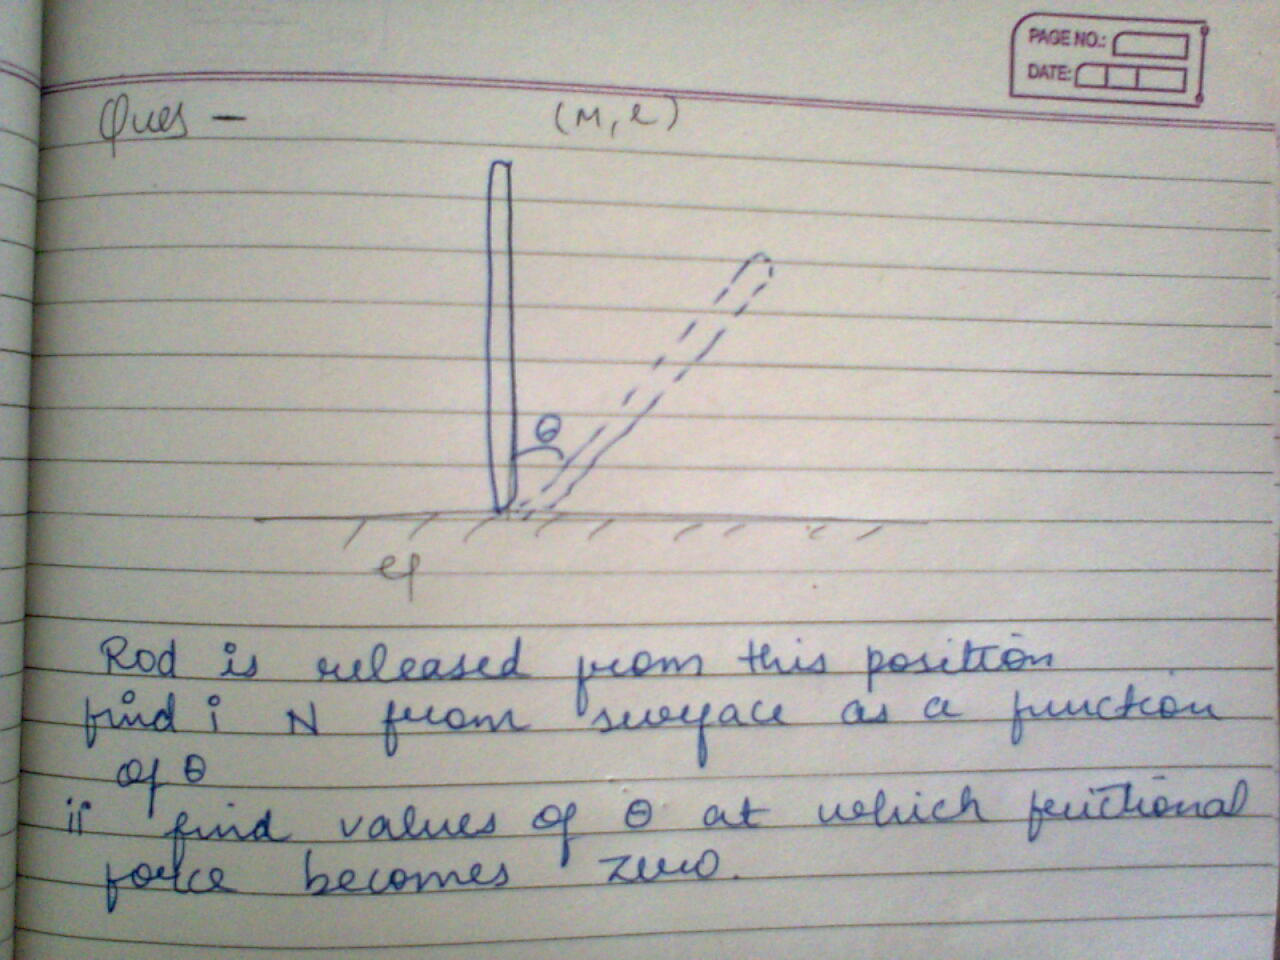 PAGE NO.:
DATE:
Ques - (M, l)
θ
Rod is released from this position
find i N from surface as a function
of θ
ii find values of θ at which frictional
force becomes zero.